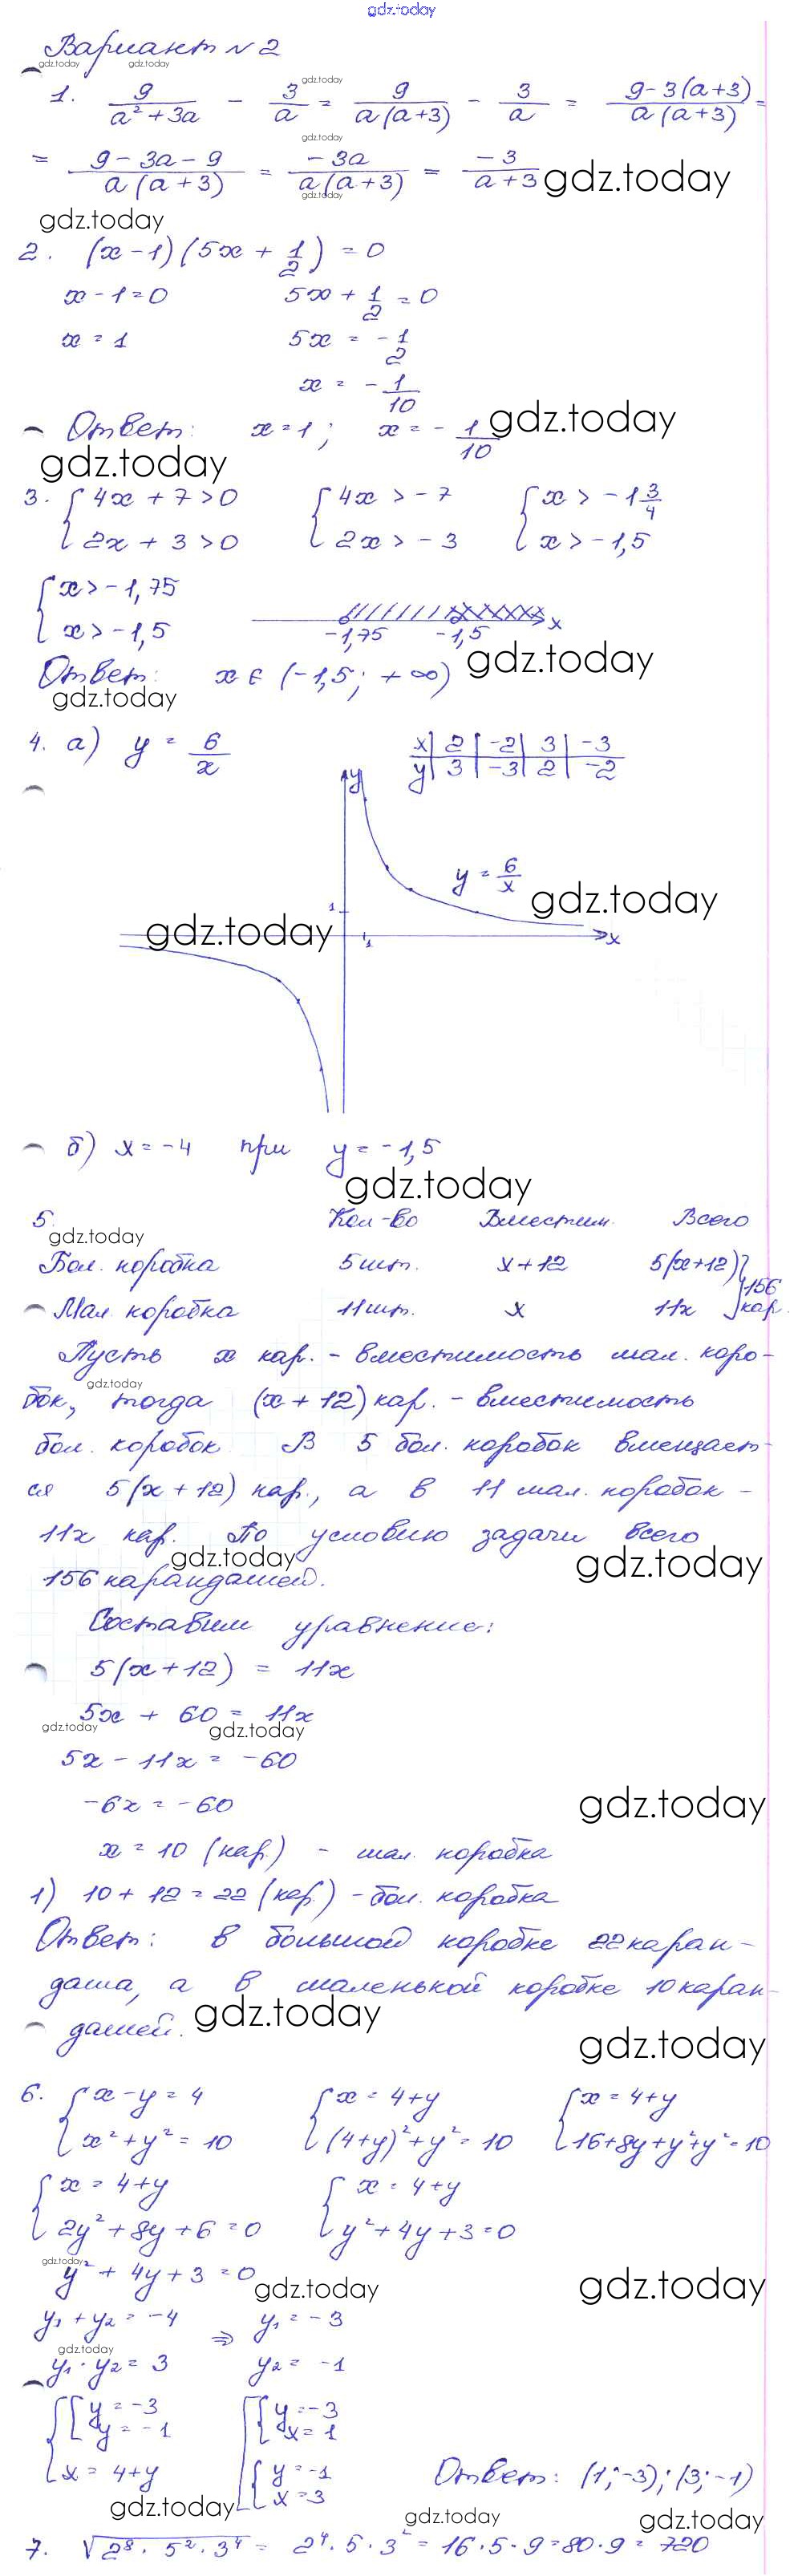 gdz.today
Вариант №2
gdz.today gdz.today
1. 9/(a² + 3a) - 3/a = 9/(a(a+3)) - 3/a = (9-3(a+3))/(a(a+3)) =
gdz.today
gdz.today
= (9-3a-9)/(a(a+3)) = -3a/(a(a+3)) = -3/(a+3) gdz.today
gdz.today
gdz.today
2. (x-1)(5x + 1/2) = 0
x-1=0 5x + 1/2 = 0
x = 1 5x = -1/2
x = -1/10
Ответ: x=1; x = -1/10 gdz.today
gdz.today
3. { 4x + 7 > 0 { 4x > -7 { x > -1 3/4
2x + 3 > 0 2x > -3 x > -1,5
{ x > -1,75
x > -1,5 -1,75 -1,5 x
Ответ: x ∈ (-1,5; +∞) gdz.today
gdz.today
4. а) y = 6/x x | 2 | -2 | 3 | -3
y | 3 | -3 | 2 | -2
y
y = 6/x gdz.today
1
gdz.today 1 x
б) x = -4 при y = -1,5
gdz.today
5. Кол-во Вместим. Всего
gdz.today
Бол. коробка 5 шт. x+12 5(x+12) } 156
Мал. коробка 11 шт. x 11x кар.
Пусть x кар. - вместимость мал. коро-
gdz.today
бок, тогда (x+12) кар. - вместимость
бол. коробок. В 5 бол. коробок вмещает-
ся 5(x+12) кар., а в 11 мал. коробок -
11x кар. По условию задачи всего
gdz.today gdz.today
156 карандашей.
Составим уравнение:
5(x+12) = 11x
5x + 60 = 11x
gdz.today gdz.today
5x - 11x = -60
-6x = -60 gdz.today
x = 10 (кар.) - мал. коробка
1) 10 + 12 = 22 (кар.) - бол. коробка
Ответ: в большой коробке 22 каран-
даша, а в маленькой коробке 10 каран-
дашей. gdz.today
gdz.today
6. { x-y = 4 { x = 4+y { x = 4+y
x²+y² = 10 (4+y)²+y² = 10 16+8y+y²+y² = 10
{ x = 4+y { x = 4+y
2y²+8y+6 = 0 y²+4y+3 = 0
gdz.today
y² + 4y + 3 = 0 gdz.today gdz.today
y₁ + y₂ = -4 ⇒ y₁ = -3
gdz.today
y₁ · y₂ = 3 y₂ = -1
{ [ y = -3 [ { y = -3
y = -1 x = 1
x = 4+y { y = -1 Ответ: (1; -3); (3; -1)
x = 3
gdz.today gdz.today gdz.today
7. √(2⁸ · 5² · 3⁴) = 2⁴ · 5 · 3² = 16 · 5 · 9 = 80 · 9 = 720